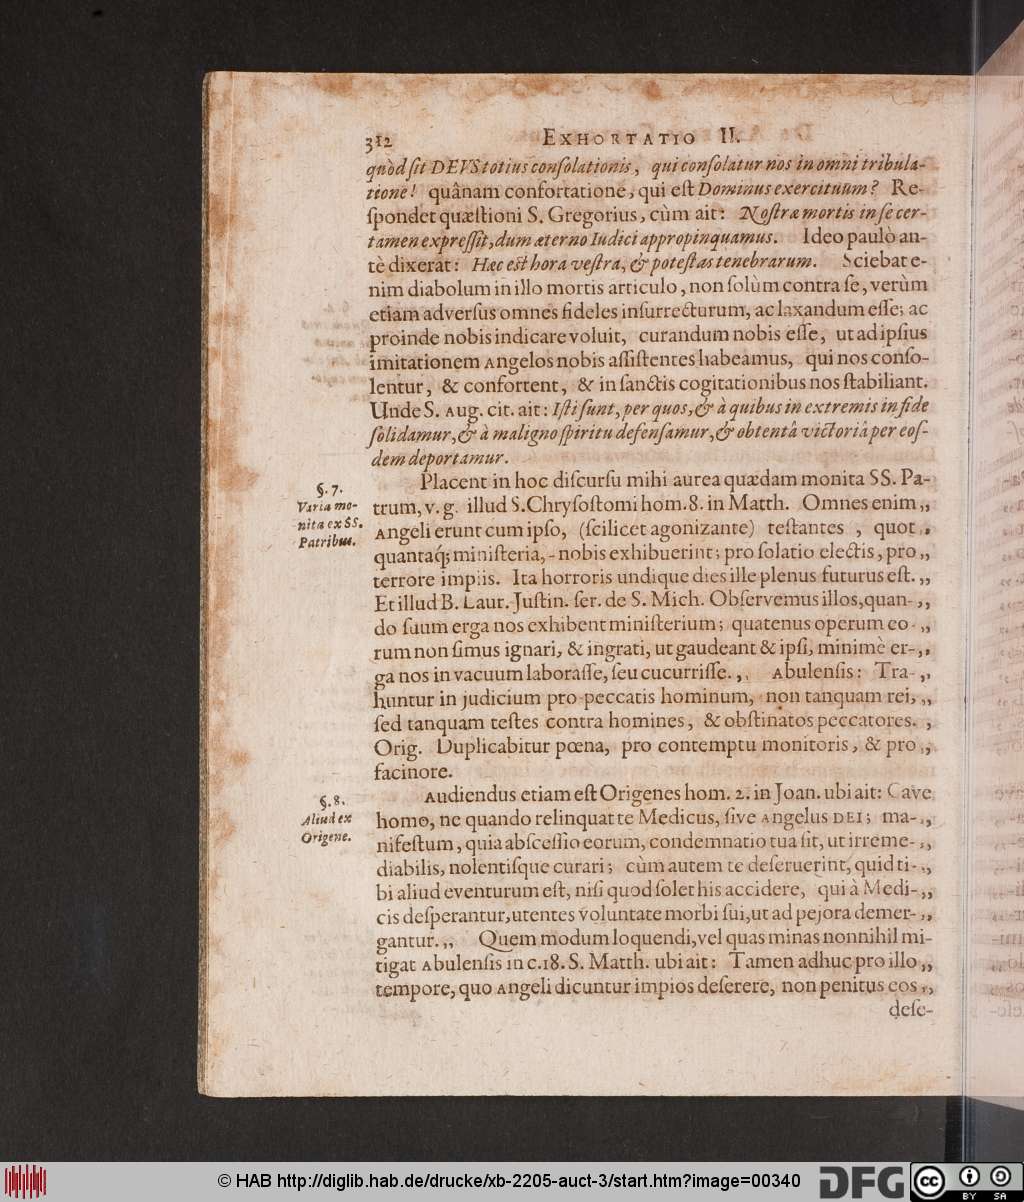 312 EXHORTATIO II.
quòd ſit DEVS totius conſolationis, qui conſolatur nos in omni tribula-
tione! quânam confortatione, qui eſt Dominus exercituum? Re-
ſpondet quæſtioni S. Gregorius, cùm ait: Noſtræ mortis in ſe cer-
tamen expreſſit, dum æterno Iudici appropinquamus. Ideo paulò an-
tè dixerat: Hæc est hora veſtra, & poteſtas tenebrarum. Sciebat e-
nim diabolum in illo mortis articulo, non ſolùm contra ſe, verùm
etiam adverſus omnes fideles inſurrecturum, ac laxandum eſſe; ac
proinde nobis indicare voluit, curandum nobis eſſe, ut ad ipſius
imitationem Angelos nobis aſſiſtentes habeamus, qui nos conſo-
lentur, & confortent, & in ſanctis cogitationibus nos ſtabiliant.
Unde S. Aug. cit. ait: Iſti ſunt, per quos, & à quibus in extremis in fide
ſolidamur, & à maligno ſpiritu defenſamur, & obtentâ victoriâ per eoſ-
dem deportamur.
§. 7.
Varia mo-
nita ex SS.
Patribus.
Placent in hoc diſcurſu mihi aurea quædam monita SS. Pa-
trum, v. g. illud S. Chryſoſtomi hom. 8. in Matth. Omnes enim „
Angeli erunt cum ipſo, (ſcilicet agonizante) teſtantes, quot „
quantaq; miniſteria, nobis exhibuerint; pro ſolatio electis, pro „
terrore impiis. Ita horroris undique dies ille plenus futurus eſt. „
Et illud B. Laur. Juſtin. ſer. de S. Mich. Obſervemus illos, quan- „
do ſuum erga nos exhibent miniſterium; quatenus operum eo- „
rum non ſimus ignari, & ingrati, ut gaudeant & ipſi, minimè er- „
ga nos in vacuum laboraſſe, ſeu cucurriſſe. „ Abulenſis: Tra- „
huntur in judicium pro peccatis hominum, non tanquam rei, „
ſed tanquam teſtes contra homines, & obſtinatos peccatores. ,
Orig. Duplicabitur pœna, pro contemptu monitoris, & pro „
facinore.
§. 8.
Aliud ex
Origene.
Audiendus etiam eſt Origenes hom. 2. in Joan. ubi ait: Cave
homo, ne quando relinquat te Medicus, ſive Angelus DEI; ma- „
nifeſtum, quia abſceſſio eorum, condemnatio tua ſit, ut irreme- „
diabilis, nolentiſque curari; cùm autem te deſeruerint, quid ti- „
bi aliud eventurum eſt, niſi quod ſolet his accidere, qui à Medi- „
cis deſperantur, utentes voluntate morbi ſui, ut ad pejora demer- „
gantur. „ Quem modum loquendi, vel quas minas nonnihil mi-
tigat Abulenſis in c. 18. S. Matth. ubi ait: Tamen adhuc pro illo „
tempore, quo Angeli dicuntur impios deſerere, non penitus eos „
deſe-
© HAB http://diglib.hab.de/drucke/xb-2205-auct-3/start.htm?image=00340
DFG
cc BY SA